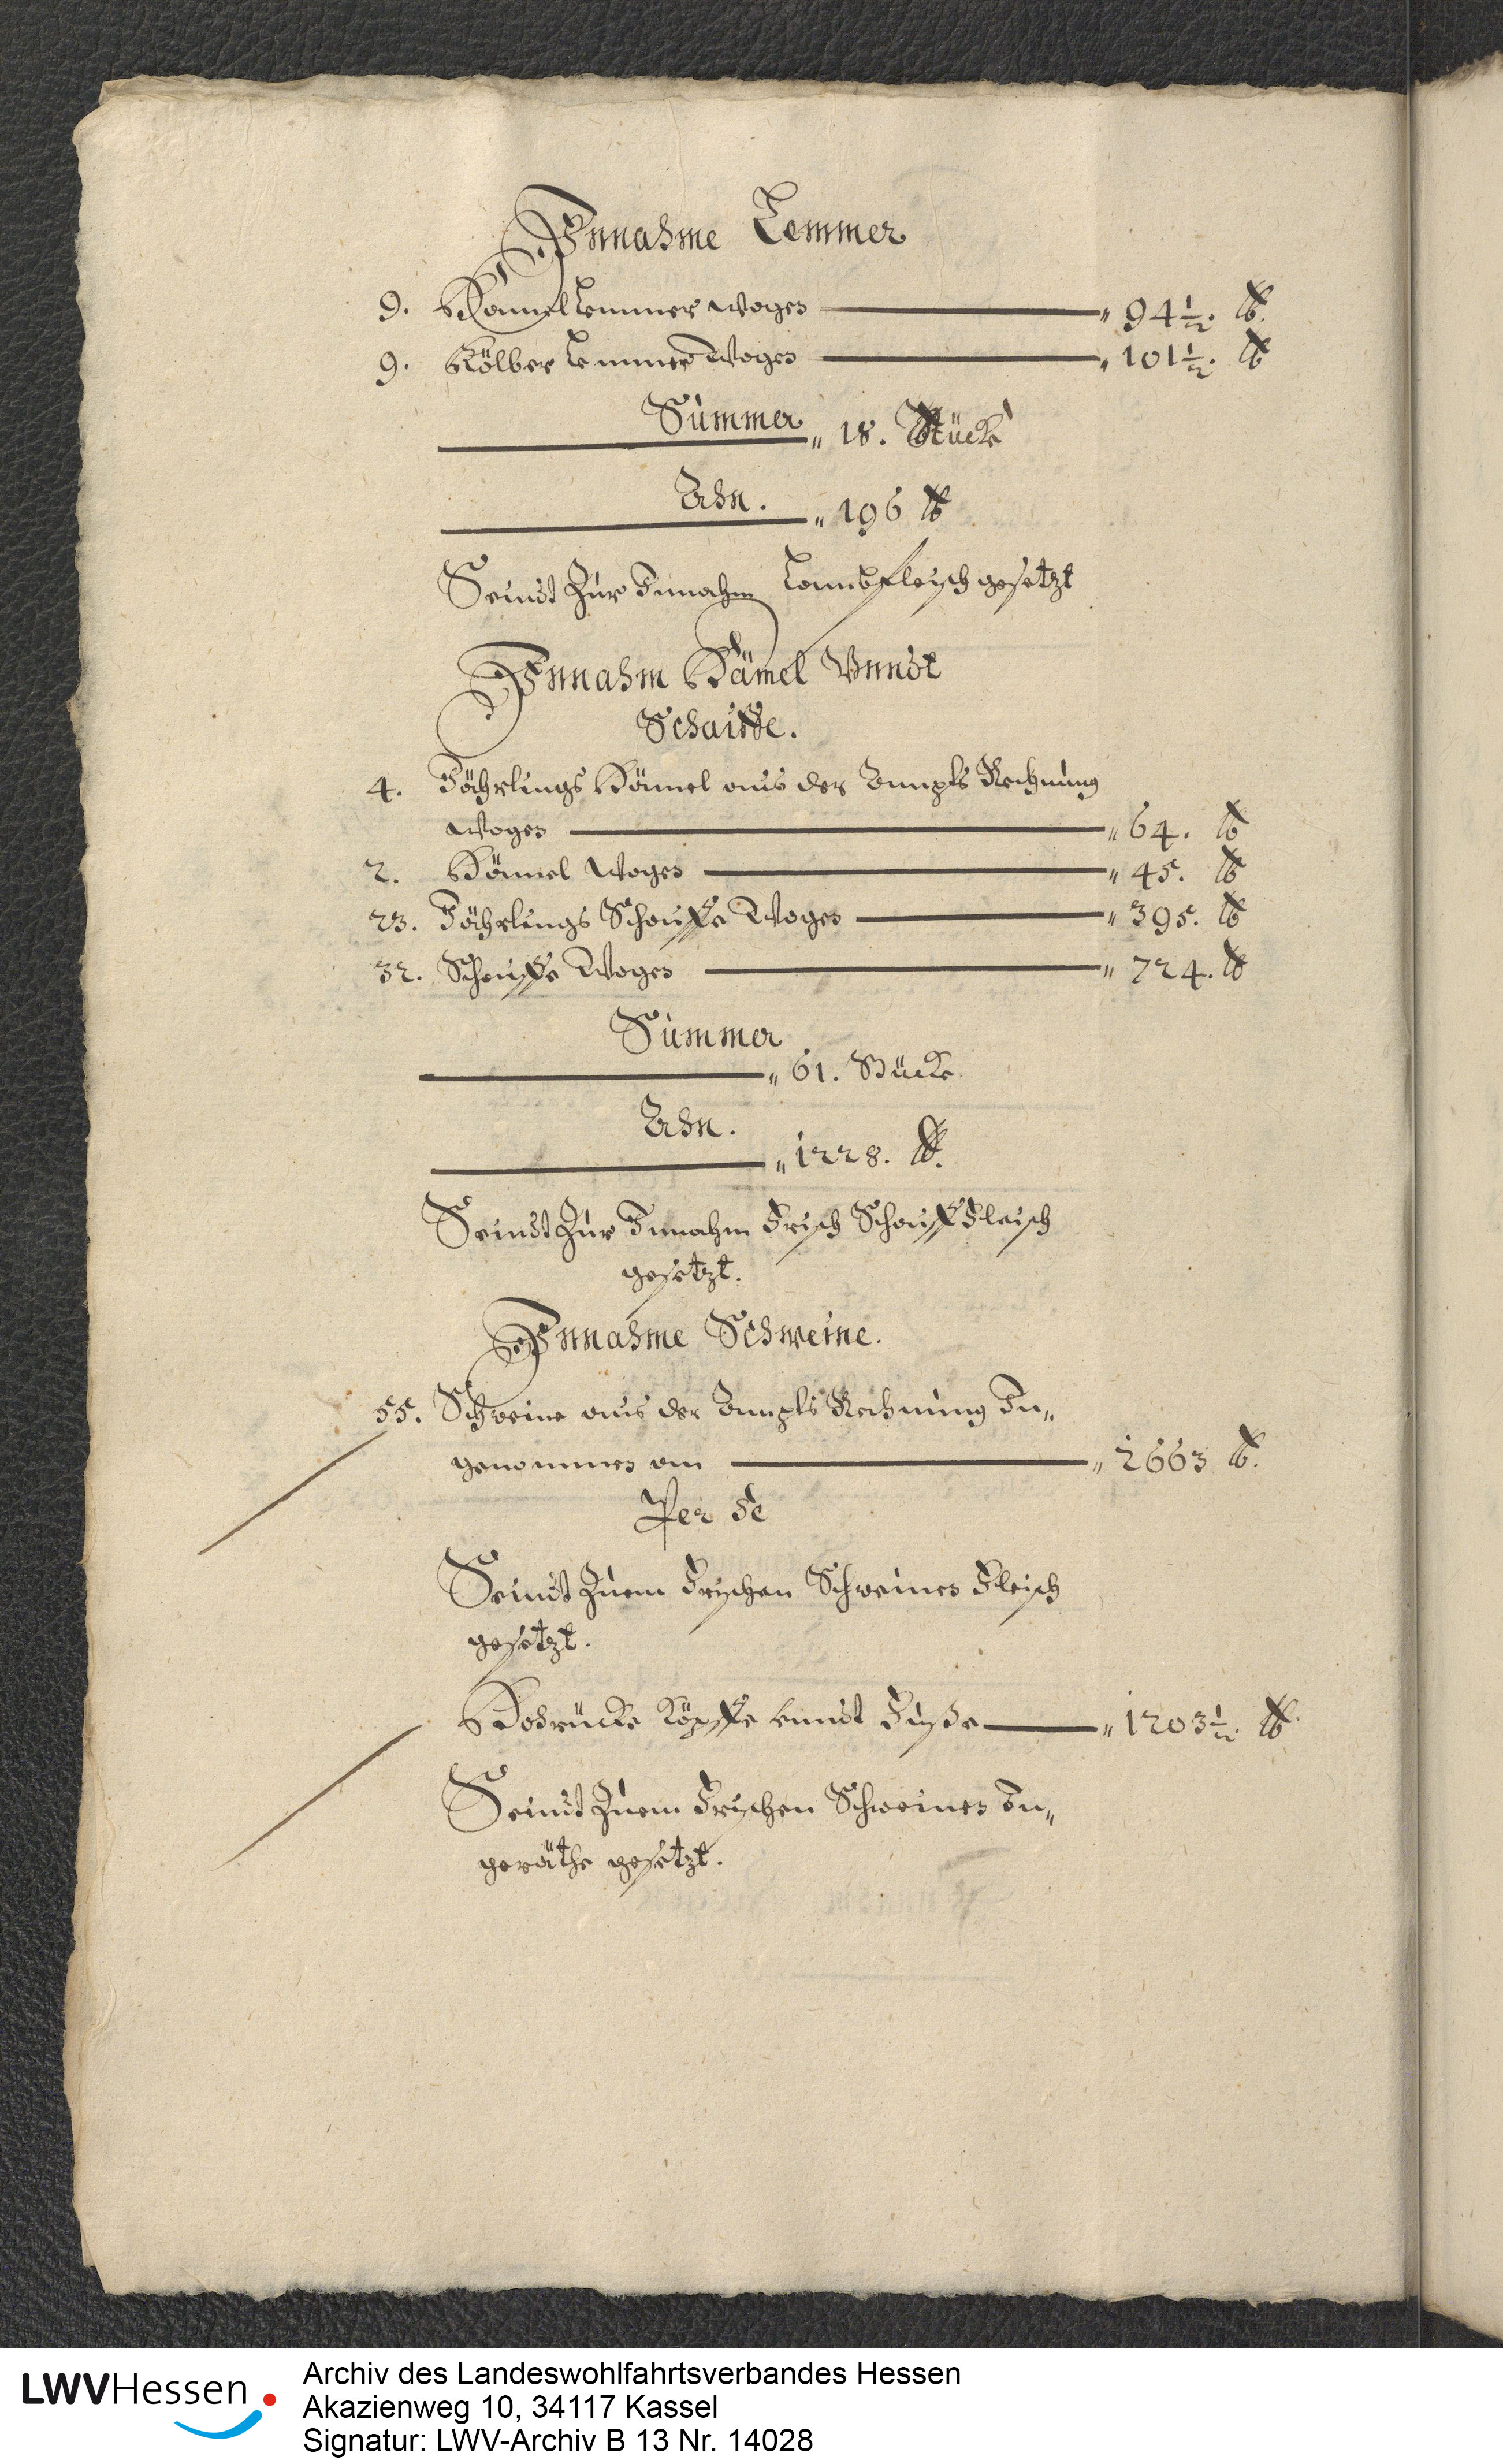 Innahme Lemmer
9. Hamel Lemmer wogen „ 94½. lb.
9. Kölber Lemmer Wogen „ 101½. lb
Summer „ 18. Stück
„ 196 lb
Seindt Zur Innahm Lambfleisch gesetzt
Innahm Hämel Vnndt
Schaiffe.
4. Jährlings Hämel aus der Rechnung
wogen „ 64. lb
2. Hämel Wogen „ 45. lb
23. Jährlings Schauffe Wogen „ 395. lb
32. Schauffe Wogen „ 724. lb
Summer
„ 61. Stücke
„ 1228. lb.
Seindt Zur Innahm Frisch Schauff Fleisch
gesetzt.
Innahme Schweine.
55. Schweine aus der Rechnung In„
genommen am „ 2663 lb.
Per se
Seindt Zuem Frischen Schweinen Fleisch
gesetzt.
Köpffe unndt Fuße „ 1203½. lb.
Seindt Zuem Frischen Schweinen In„
geräthe gesetzt.
LWVHessen
Archiv des Landeswohlfahrtsverbandes Hessen
Akazienweg 10, 34117 Kassel
Signatur: LWV-Archiv B 13 Nr. 14028